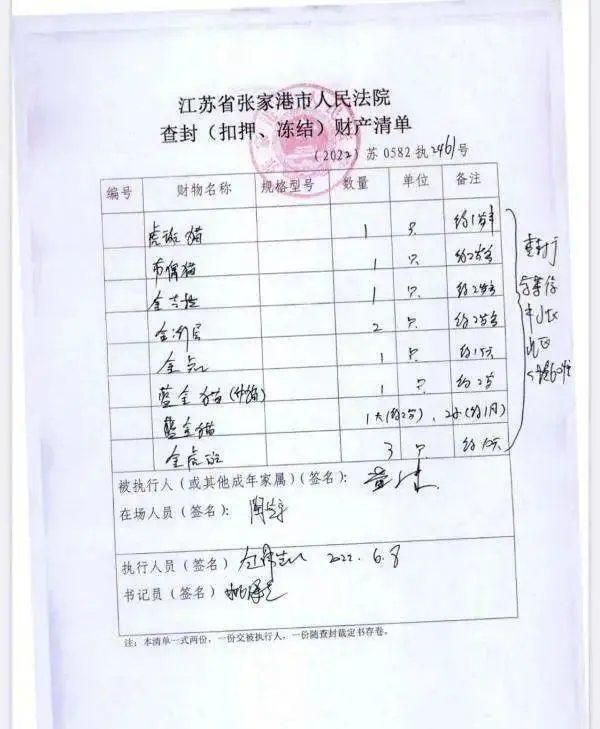 江苏省张家港市人民法院
查封（扣押、冻结）财产清单
（2022）苏 0582 执2461号
编号 财物名称 规格型号 数量 单位 备注
虎斑猫 1 只 约1岁半
布偶猫 1 只 约2岁多
金吉拉 1 只 约2岁多
金渐层 2 只 约2岁多
金点 1 只 约1岁
蓝金猫 1 只 约2岁
蓝金猫 1大（约2岁），2小（约1月）
金虎斑 3 只
查封于
被执行人（或其他成年家属）（签名）：
在场人员（签名）：
执行人员（签名） 2022. 6. 8
书记员（签名）
注：本清单一式两份，一份交被执行人，一份随查封裁定书存卷。